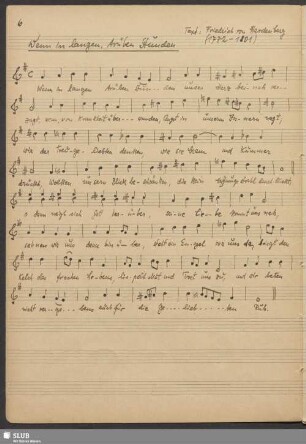 6
Text: Friedrich von Hardenberg
(1772-1801)
Wenn in langen, trüben Stunden
Wenn in langen trüben Stun... den unser Herz beinah ver...
zagt, wenn von Krankheit über... wunden Angst in unserm Innern nagt,
wir der Treu... ge... liebten denken, wie sie Gram und Kummer
drückt, Wolken unsern Blick beschränken, die kein Hoffnungsstrahl durchblickt,
o dann neigt sich Gott her... über, sei... ne Lie... be kommt uns nah,
sehnen wir uns dann hin... über steht ein Engel vor uns da, bringt den
Kelch des frischen Lebens, lispelt Mut und Trost uns zu, und wir beten
nicht ver... ge... bens auch für die Ge... lieb... ten Ruh.
SLUB